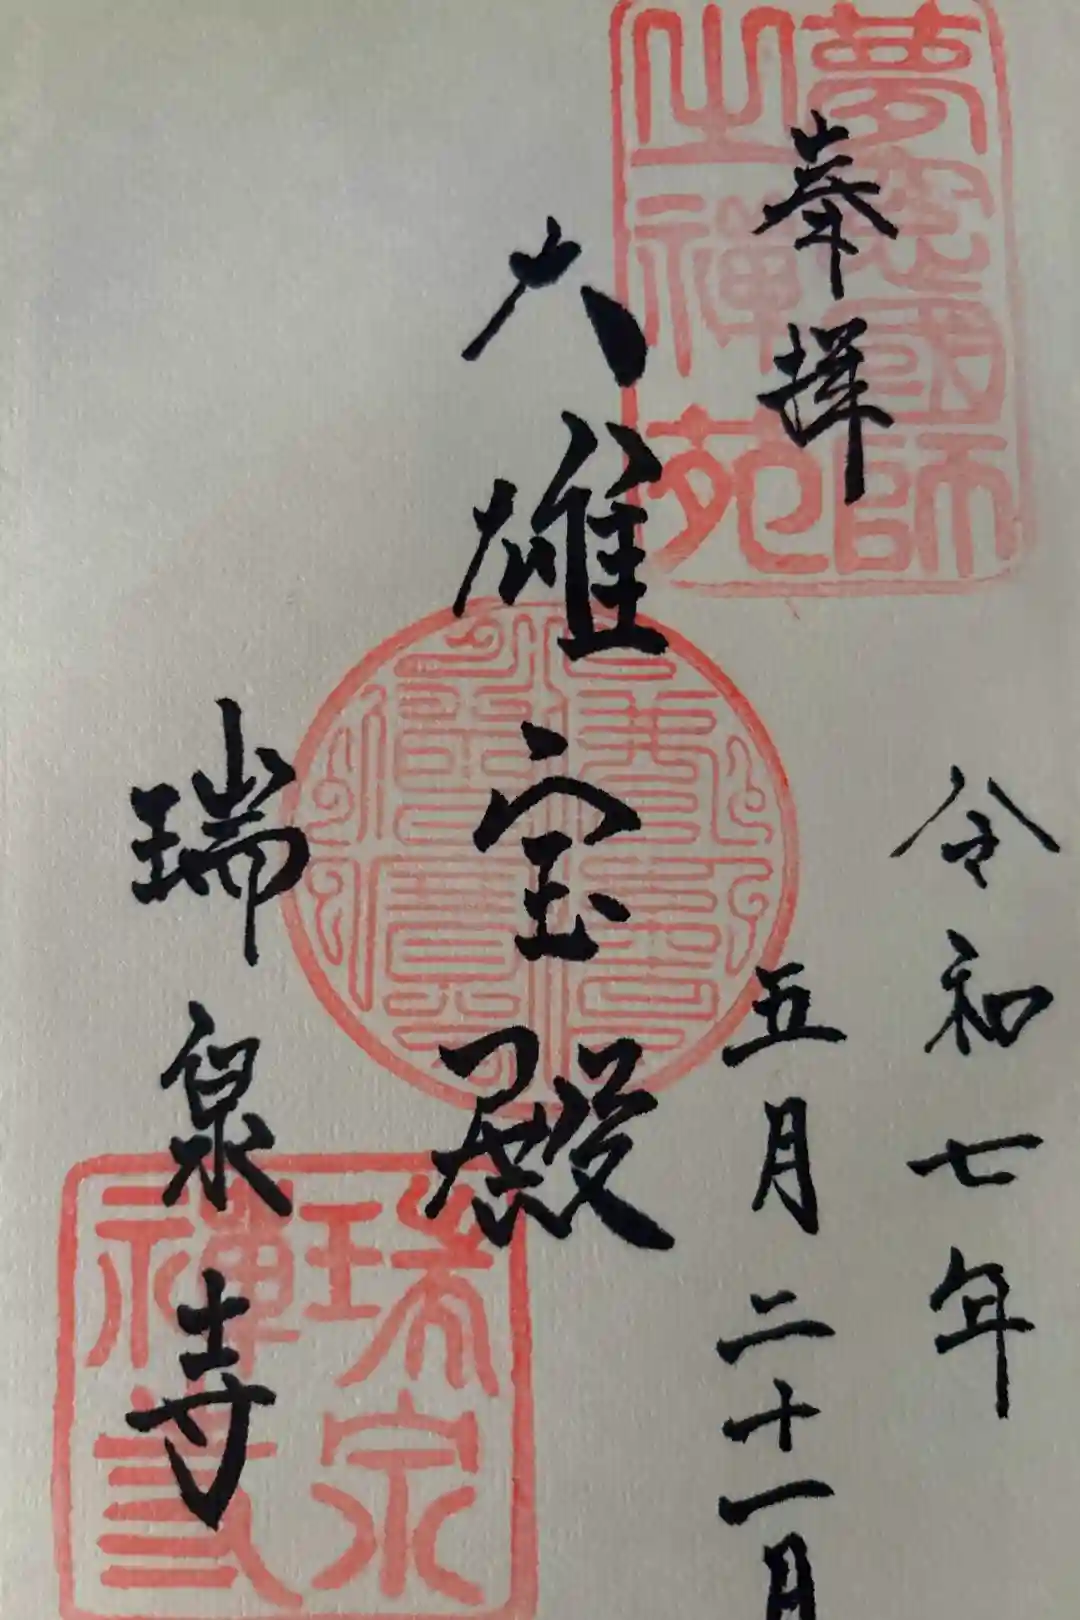 奉拝
令和七年
五月二十一日
大雄宝殿
瑞泉寺
夢窓國師
之禅苑
瑞泉
禅寺